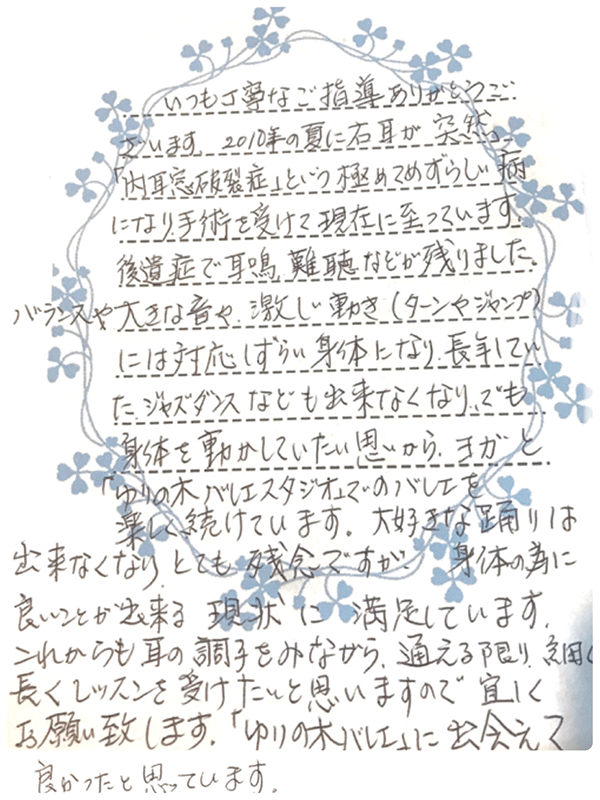 いつも丁寧なご指導ありがとうご
ざいます。2010年の夏に右耳が突然、
「内耳窓破裂症」という極めてめずらしい病
になり、手術を受けて現在に至っています。
後遺症で耳鳴、難聴などが残りました。
バランスや大きな音や、激しい動き(ターンやジャンプ)
には対応しずらい身体になり、長年してい
た、ジャズダンスなども出来なくなり、でも
身体を動かしていたい思いから、ヨガと
「ゆりの木バレエスタジオ」でのバレエを
楽しく続けています。大好きな踊りは
出来なくなり、とても残念ですが、身体の為に
良いことが出来る現状に満足しています。
これからも耳の調子をみながら、通える限り、細く
長くレッスンを受けたいと思いますので宜しく
お願い致します。「ゆりの木バレエ」に出会えて
良かったと思っています。